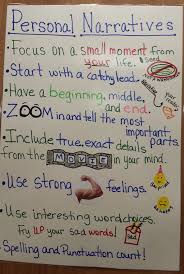 Personal Narratives
• Focus on a small moment from
your life.
seed
• Start with a catchy lead.
• Have a beginning, middle,
and end.
• ZOOM in and tell the most
important parts.
• Include true, exact details
from the MOVIE in your mind.
• Use Strong feelings.
• Use interesting word choices.
fry up your sad words!
• Spelling and Punctuation count!